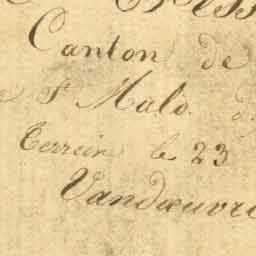 Canton de
St Malo
Terrein le 23
Vandœuvre